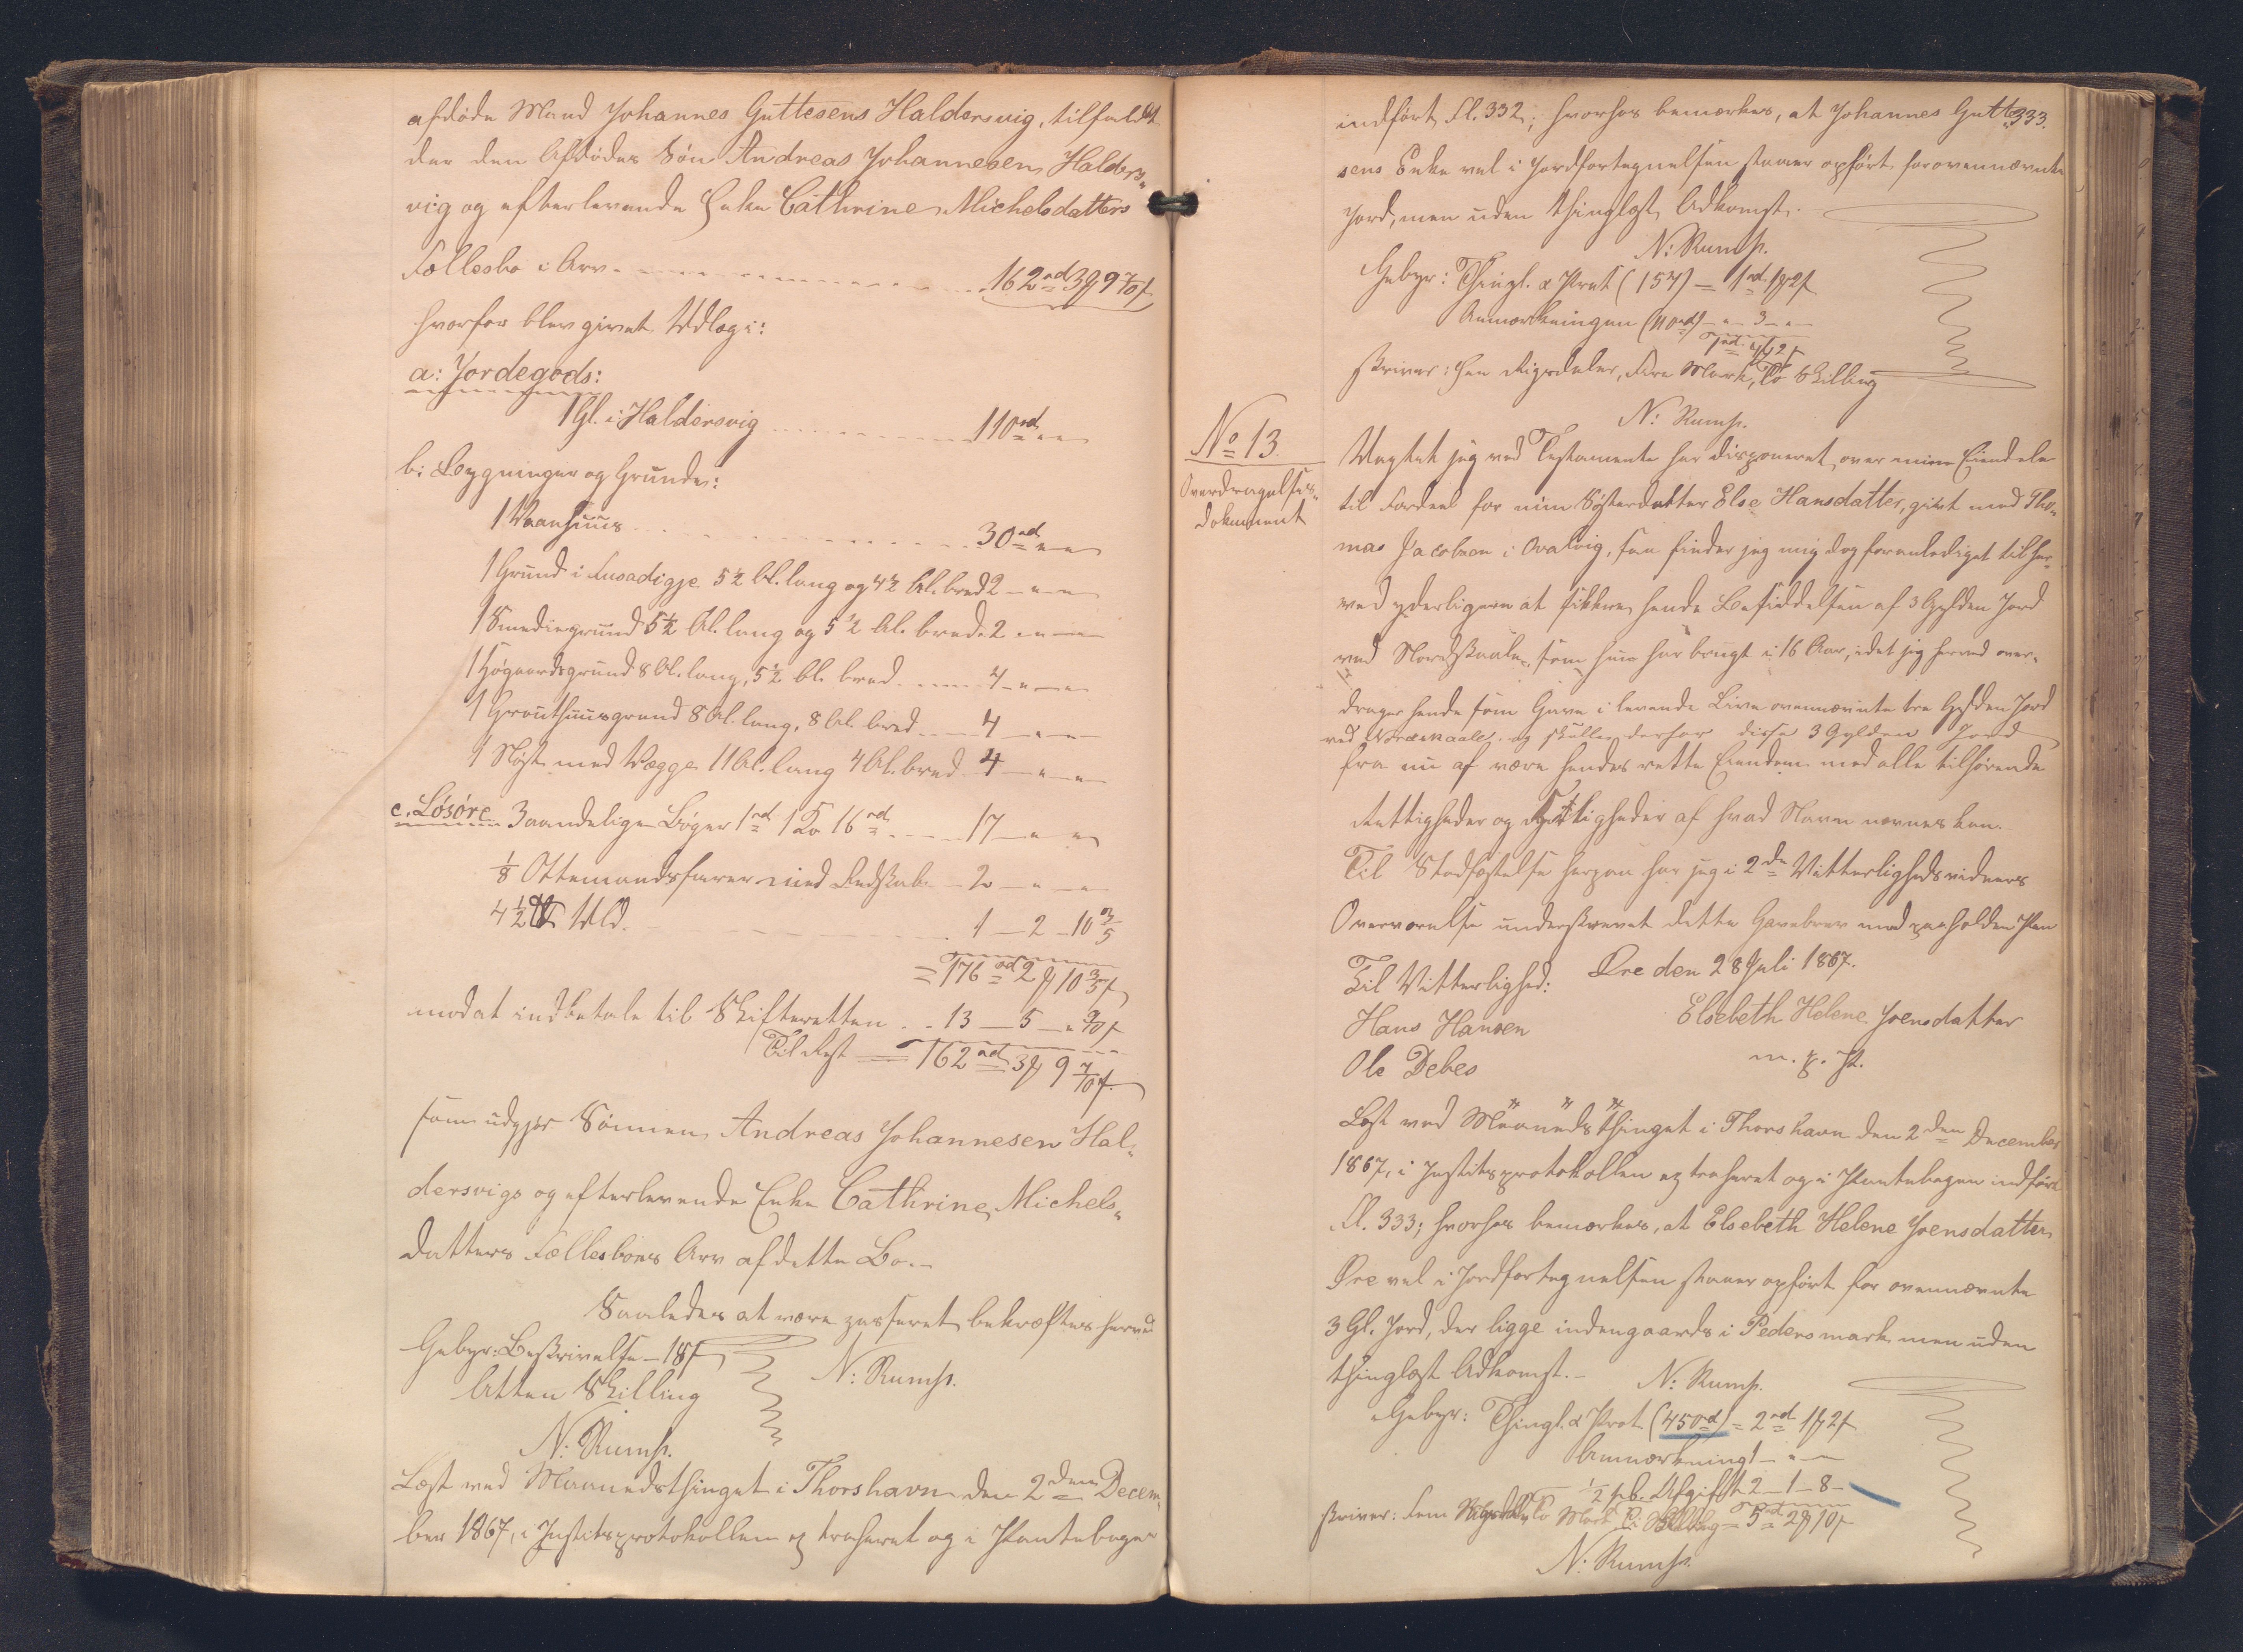 afdøde Mand Johannes Guttesens Haldersvig, tilfaldt
der den Afdødes Søn Andreas Johannesen Halders„
vig og efterlevende Enke Cathrine Michelsdatters
Fællesbo i Arv - - - 162 rd 3 ₰ 9 7/10 s
hvorfor blev givet Udlæg i:
a: Jordegods:
1 Gl. i Haldersvig - - - 110 rd „ „
b: Bygninger og Grunde:
1 Vaanhuus - - - 30 rd „ „
1 Grund i 5½ Al. lang og 4½ Al. bred 2 - „ - „
1 Smediegrund 5½ Al. lang og 5½ Al. bred. 2 - „ - „
1 Høgaardsgrund 8 Al. lang, 5½ Al. bred - - - 4 - „ - „
1 Grouthuusgrund 8 Al. lang, 8 Al. bred - - - 4 - „ - „
1 Nøst med Vægge 11 Al. lang 4 Al. bred - 4 - „ - „
c. Løsøre 3 aandelige Bøger 1 rd 1 Ko 16 rd - - - 17 - „ - „
⅛ Ottemandsfarer med Redskab - 2 - „ - „
4½ ℔ Uld. - - - 1 - 2 - 10 3/5
= 176 rd 2 ₰ 10 3/5 s
mod at indbetale til Skifteretten - - 13 - 5 - „ 9/10 s
Til Rest = 162 rd 3 ₰ 9 7/10 s.
som udgjør Sønnen Andreas Johannesen Hal„
dersvigs og efterlevende Enke Cathrine Michels„
datters Fællesboes Arv af dette Bo. -
Saaledes at være passeret bekræftes herved
Gebyr: Beskrivelse - 18 s
N: Rump.
Atten Skilling
N: Rump.
Læst ved Maanedsthinget i Thorshavn den 2den Decem„
ber 1867, i Justitsprotokollen extraheret og i Pantebogen
333.
indført Fl. 332; hvorhos bemærkes, at Johannes Gutte„
sens Enke vel i Jordfortegnelsen staaer opført for ovennævnte
Jord, men uden thinglæst Adkomst.
N: Rump.
Gebyr: Thingl. & Prot. (157) = 1 rd 1 ₰ 2 s
Anmærkningen (110 rd) - „ - 3 - „
1 rd 4 ₰ 2 s
skriver: Een Rigsdaler, Fire Mark, To Skilling
N: Rump.
No 13.
Overdragelses„
dokument
Uagtet jeg ved Testamente har disponeret over mine Eiendele
til Fordeel for min Søsterdatter Else Hansdatter, givt med Tho„
mas Jacobsen i Qvalvig, saa finder jeg mig dog foranlediget til her„
ved yderligere at sikkre hende Besiddelsen af 3 Gylden Jord
ved Nordskaale, som hun har brugt i 16 Aar, idet jeg herved over„
drager hende som Gave i levende Live ovennævnte tre Gylden Jord
ved Nordskaale. og skulle derfor disse 3 Gylden Jord
fra nu af være hendes rette Eiendom med alle tilhørende
Rettigheder og Pligtigheder af hvad Navn nævnes kan.
Til Stadfæstelse herpaa har jeg i 2de Vitterlighedsvidners
Overværelse underskrevet dette Gavebrev med paaholden Pen
Øre den 28 Juli 1867.
Til Vitterlighed:
Elsebeth Helene Joensdatter
Hans Hansen
m. p. P.
Ole Debes
Læst ved Maanedsthinget i Thorshavn den 2den December
1867, i Justitsprotokollen extraheret og i Pantebogen indført
Fl. 333; hvorhos bemærkes, at Elsebeth Helene Joensdatter
Øre vel i Jordfortegnelsen staaer opført for ovennævnte
3 Gl. Jord, der ligge indengaards i Pedersmark men uden
thinglæst Adkomst. -
N: Rump.
Gebyr: Thingl. & Prot. (450 rd) = 2 rd 1 ₰ 2 s
Anmærkning 1 - „ - „
½ pC. Afgift 2 - 1 - 8 -
skriver: Fem Rigsdaler To Mark Ti Skilling = 5 rd 2 ₰ 10 s
N: Rump.